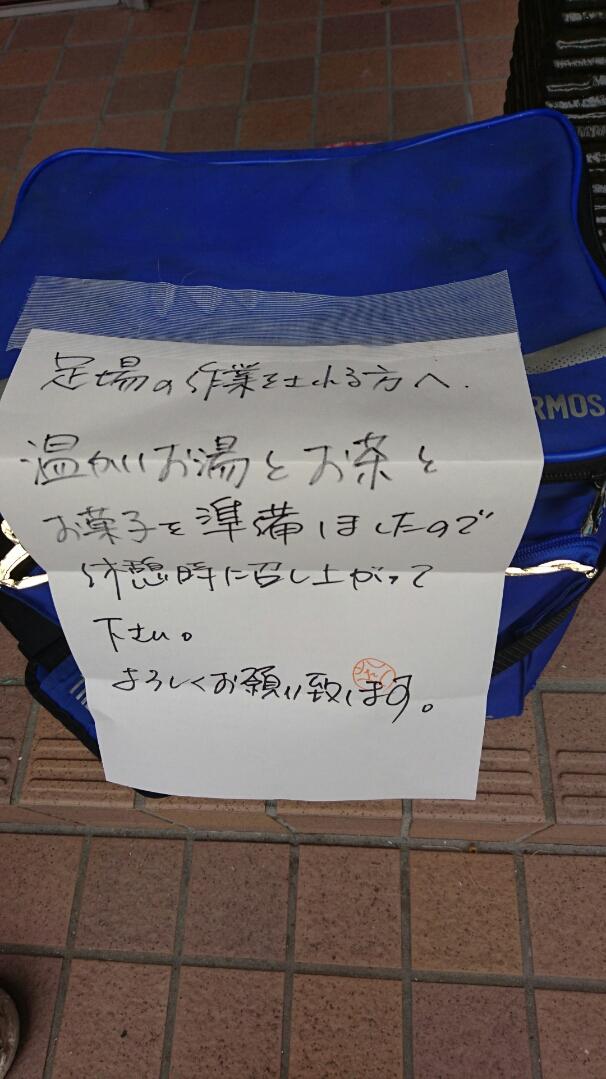 足場の作業をされる方へ.
温かいお湯とお茶と
お菓子を準備しましたので
休憩時に召し上がって
下さい。
よろしくお願い致します。
RMOS